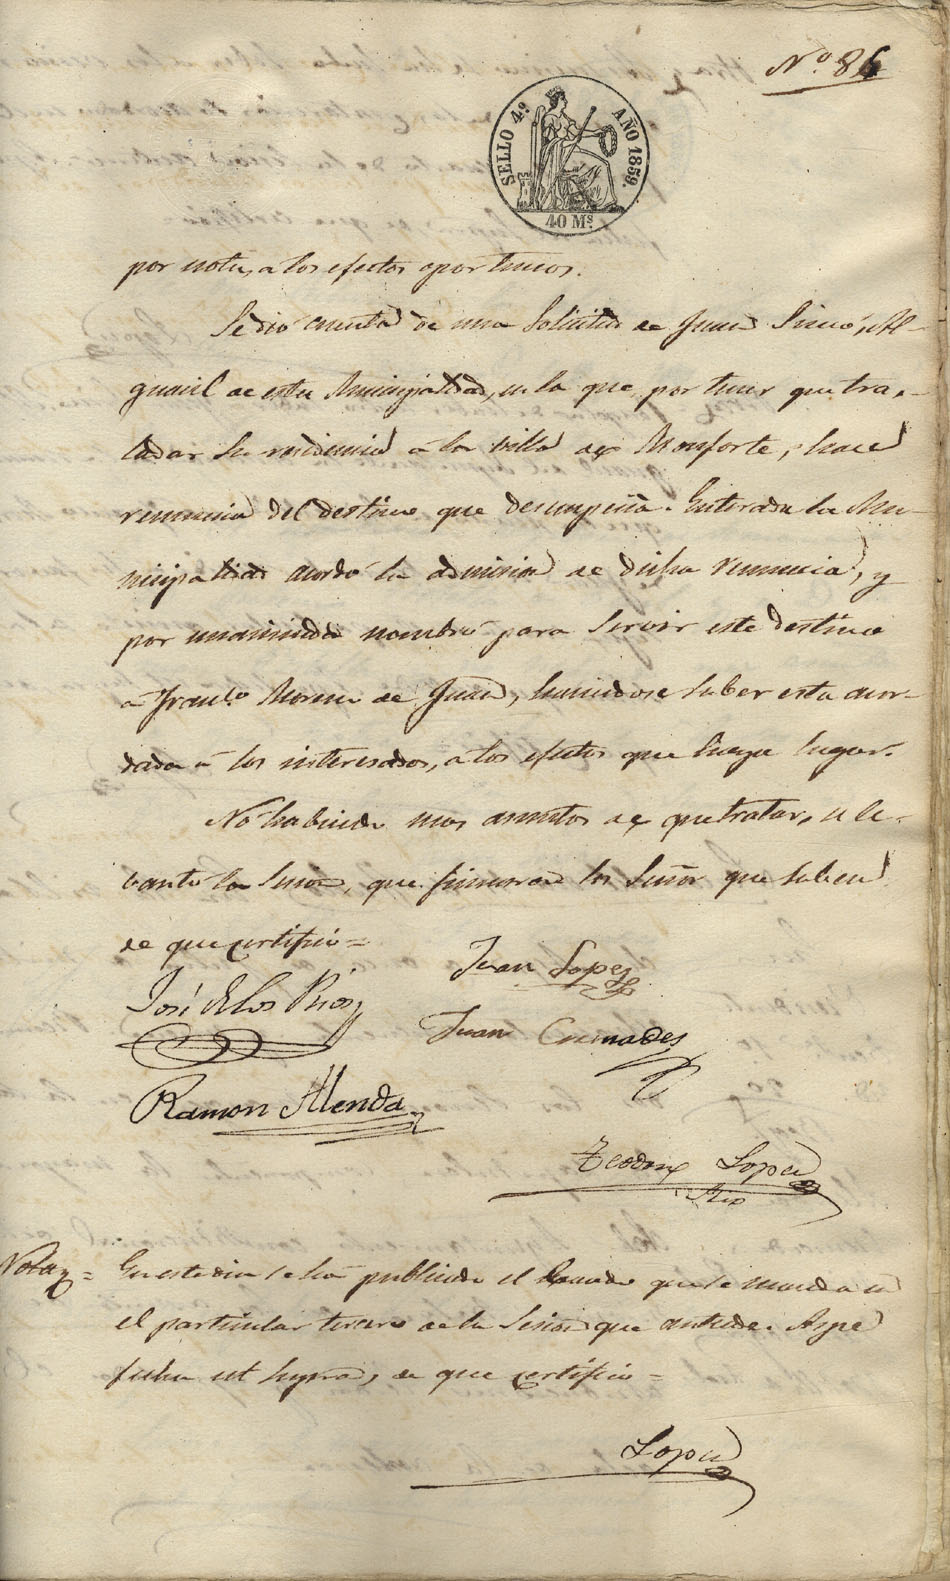 Nº. 86
SELLO 4º. AÑO 1859.
40 Ms.
por nota, a los efectos oportunos.
Se dió cuenta de una Solicitud de Juan Simó, Al-
guacil de esta Municipalidad, en la que por tener que tras-
ladar su residencia á la villa de Monforte, hace
renuncia del destino que desempeña. Enterada la Mu-
nicipalidad acordó la admision de dicha renuncia, y
por unanimidad nombró para Servir este destino
a Franco. de Juan, haciendose saber esta acor-
dada á los interesados, a los efectos que haya lugar.
No habiendo mas asuntos de que tratar, se le-
vantó la Sesion, que firmaron los Señores que saben
de que certifico=
Juan Lopez
José de los Rios
Juan Cremades
Ramon Alenda
Teodoro Lopez
Nota= En este dia se ha publicado el bando que se manda en
el particular tercero de la Sesion que antecede. Aspe
fecha ut supra, de que certifico=
Lopez